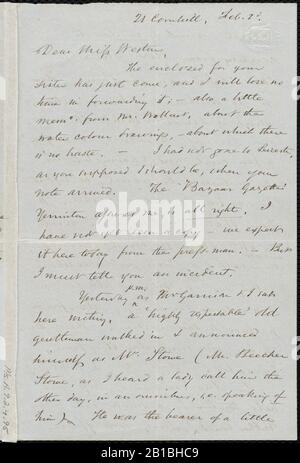 21 Cornhill, Feb. 2d.
Dear Miss Weston,
The enclosed for your
sister has just come, and I will lose no
time in forwarding it; - also a little
memo. from Mr. Wallcut, about the
water colour drawings, - about which there
is no haste. - I had not gone to Leicester,
as you supposed I should be, when your
note arrived. The "Bazaar Gazette"
Yerrinton assured me, is all right. I
have not yet seen a copy - we expect
it here today from the press-man. - But
I must tell you an incident.
Yesterday P.M. as Mr Garrison & I sat
here writing, a highly respectable old
gentleman walked in & announced
himself as Mr. Stowe (Mr. Beecher
Stowe, as I heard a lady call him the
other day, in an omnibus, speaking of
him). He was the bearer of a little
Ms. A.9.2.4.95
alamy
Image ID: 2B1BHC9
www.alamy.com